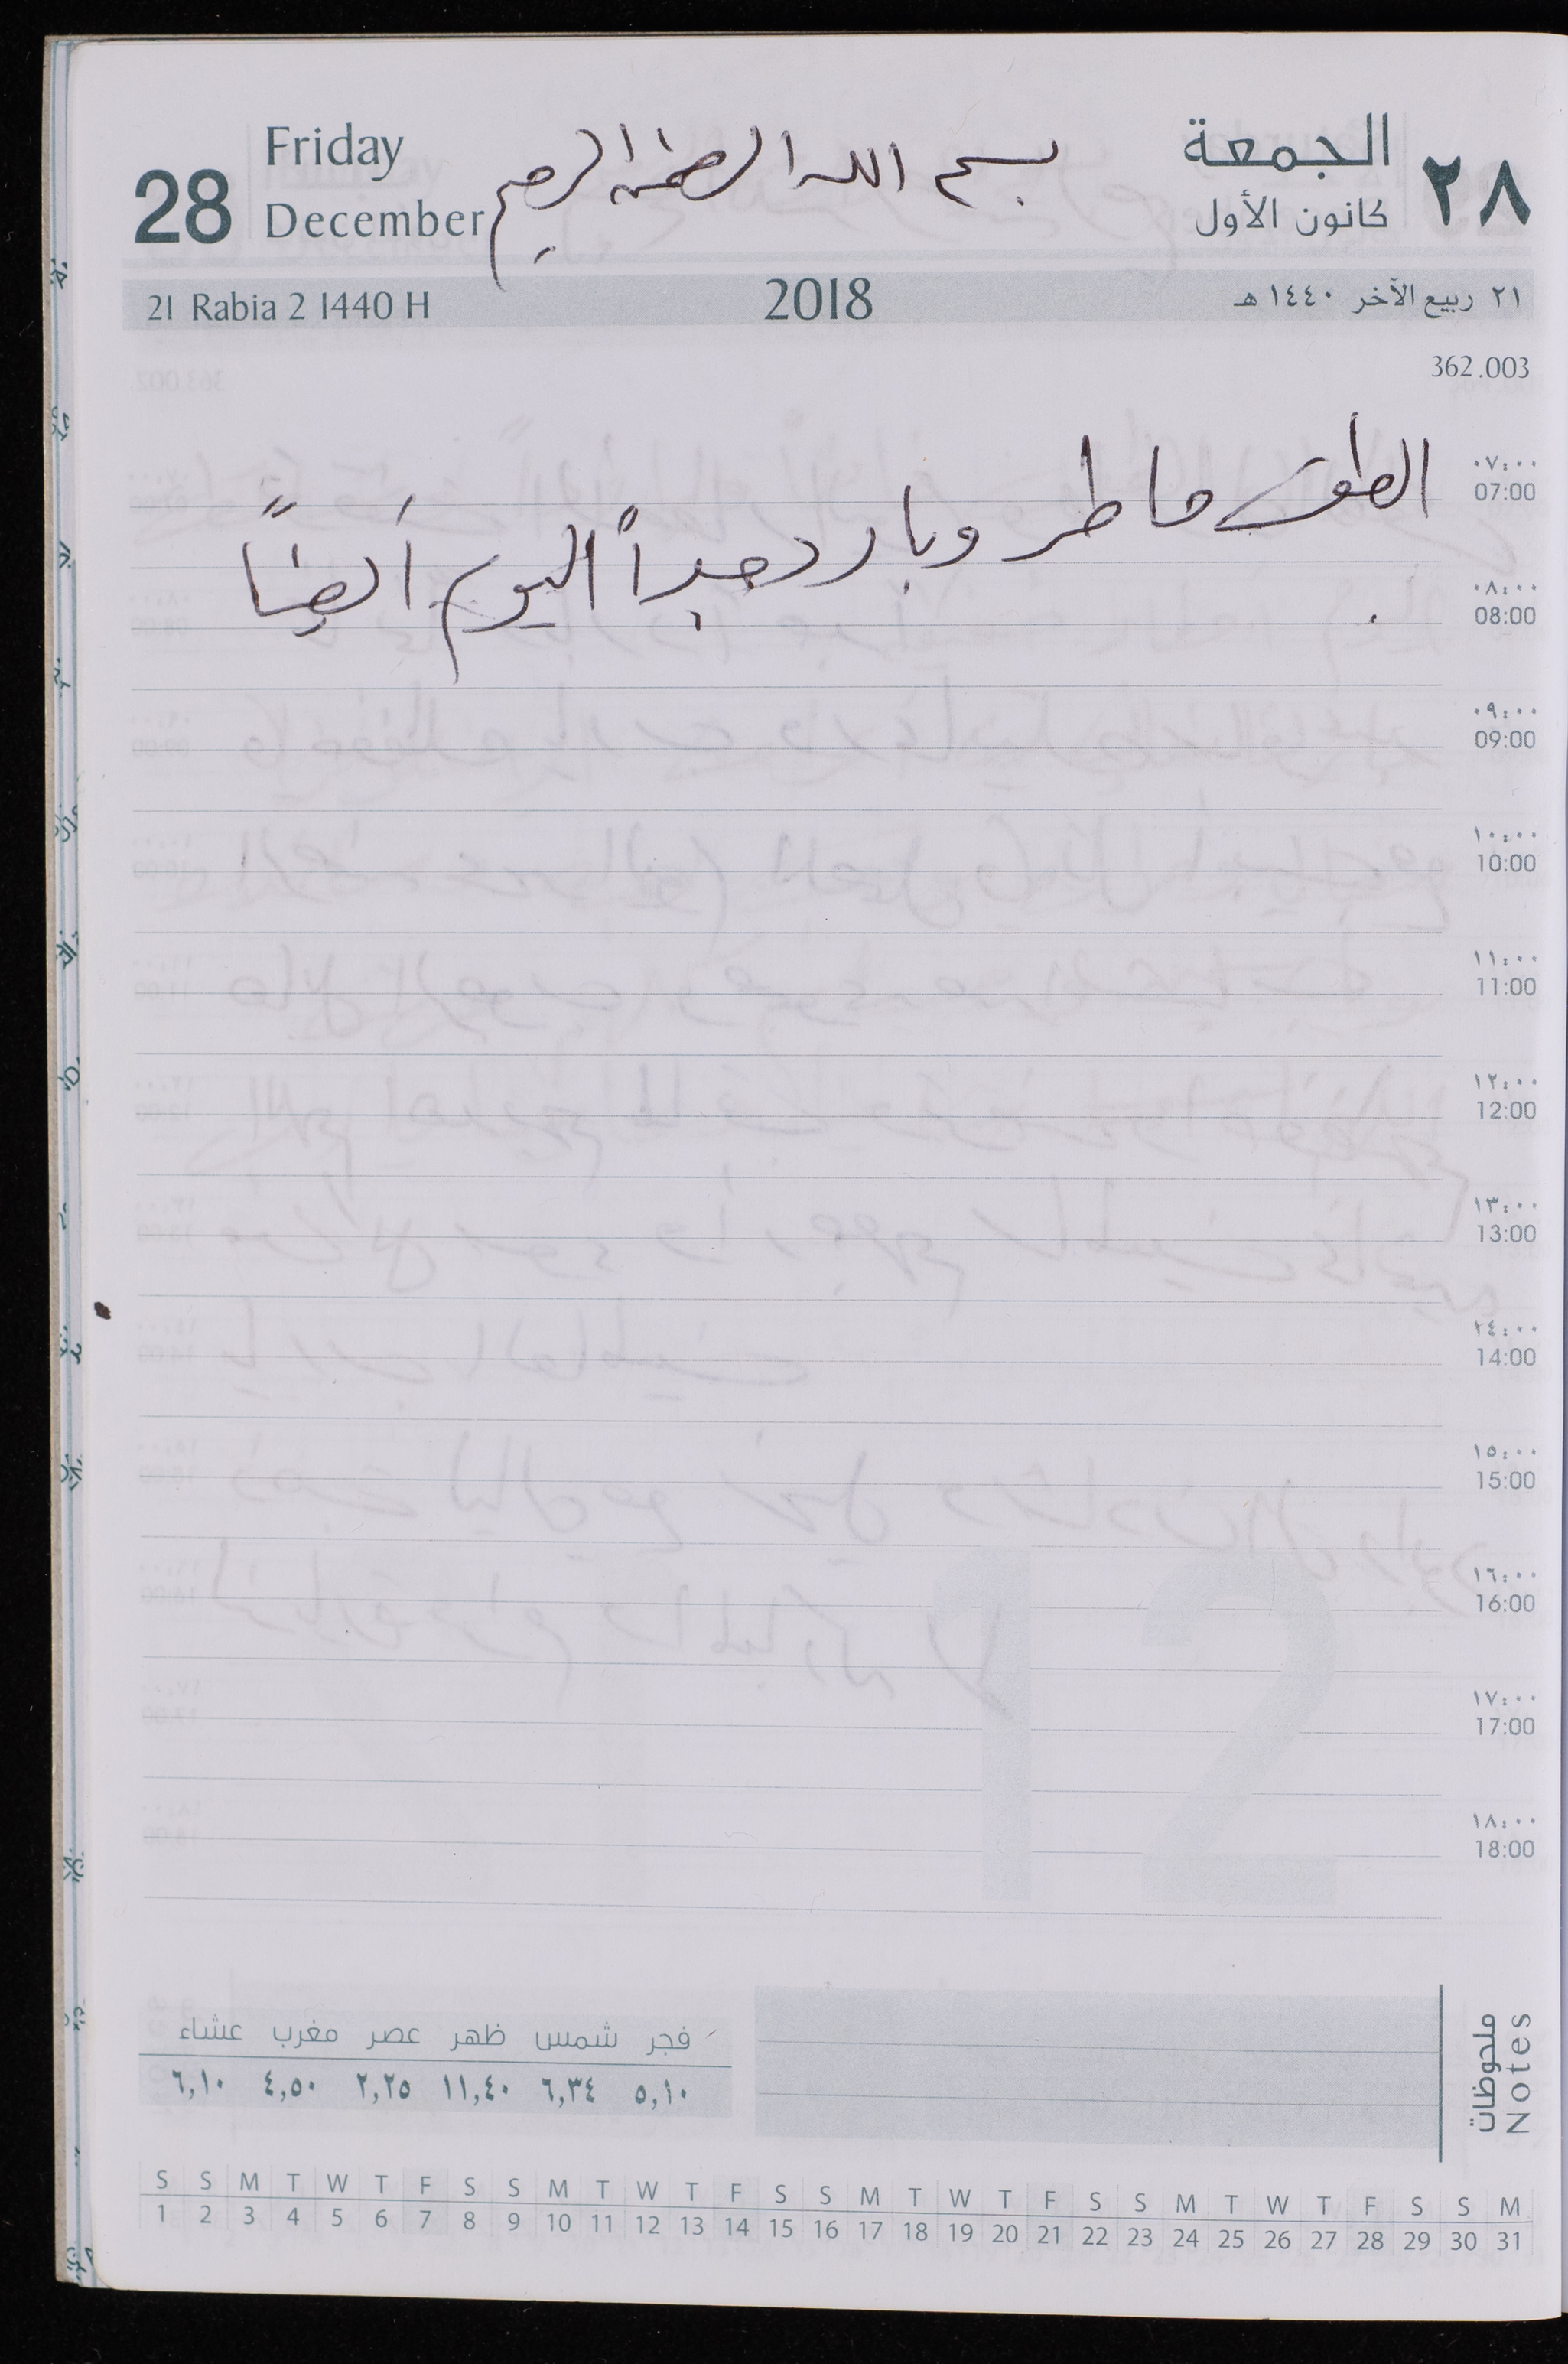 28
Friday
December
بسم الله الرحمن الرحيم
الجمعة
كانون الأول
٢٨
21 Rabia 2 1440 H
2018
٢١ ربيع الآخر ١٤٤٠ هـ
362.003
الطقس ماطر وبارد جداً اليوم أيضاً
٠٧:٠٠
07:00
٠٨:٠٠
08:00
٠٩:٠٠
09:00
١٠:٠٠
10:00
١١:٠٠
11:00
١٢:٠٠
12:00
١٣:٠٠
13:00
٢٤:٠٠
14:00
١٥:٠٠
15:00
١٦:٠٠
16:00
١٧:٠٠
17:00
١٨:٠٠
18:00
12
فجر شمس ظهر عصر مغرب عشاء
٥,١٠ ٦,٣٤ ١١,٤٠ ٢,٢٥ ٤,٥٠ ٦,١٠
ملحوظات
Notes
S S M T W T F S S M T W T F S S M T W T F S S M T W T F S S M
1 2 3 4 5 6 7 8 9 10 11 12 13 14 15 16 17 18 19 20 21 22 23 24 25 26 27 28 29 30 31